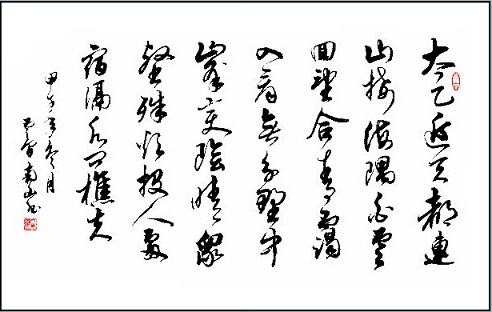 太乙近天都連
山接海隅白雲
回望合青靄
入看無分野中
峯變陰晴眾
壑殊欲投人處
宿隔水問樵夫
甲午冬月
南山